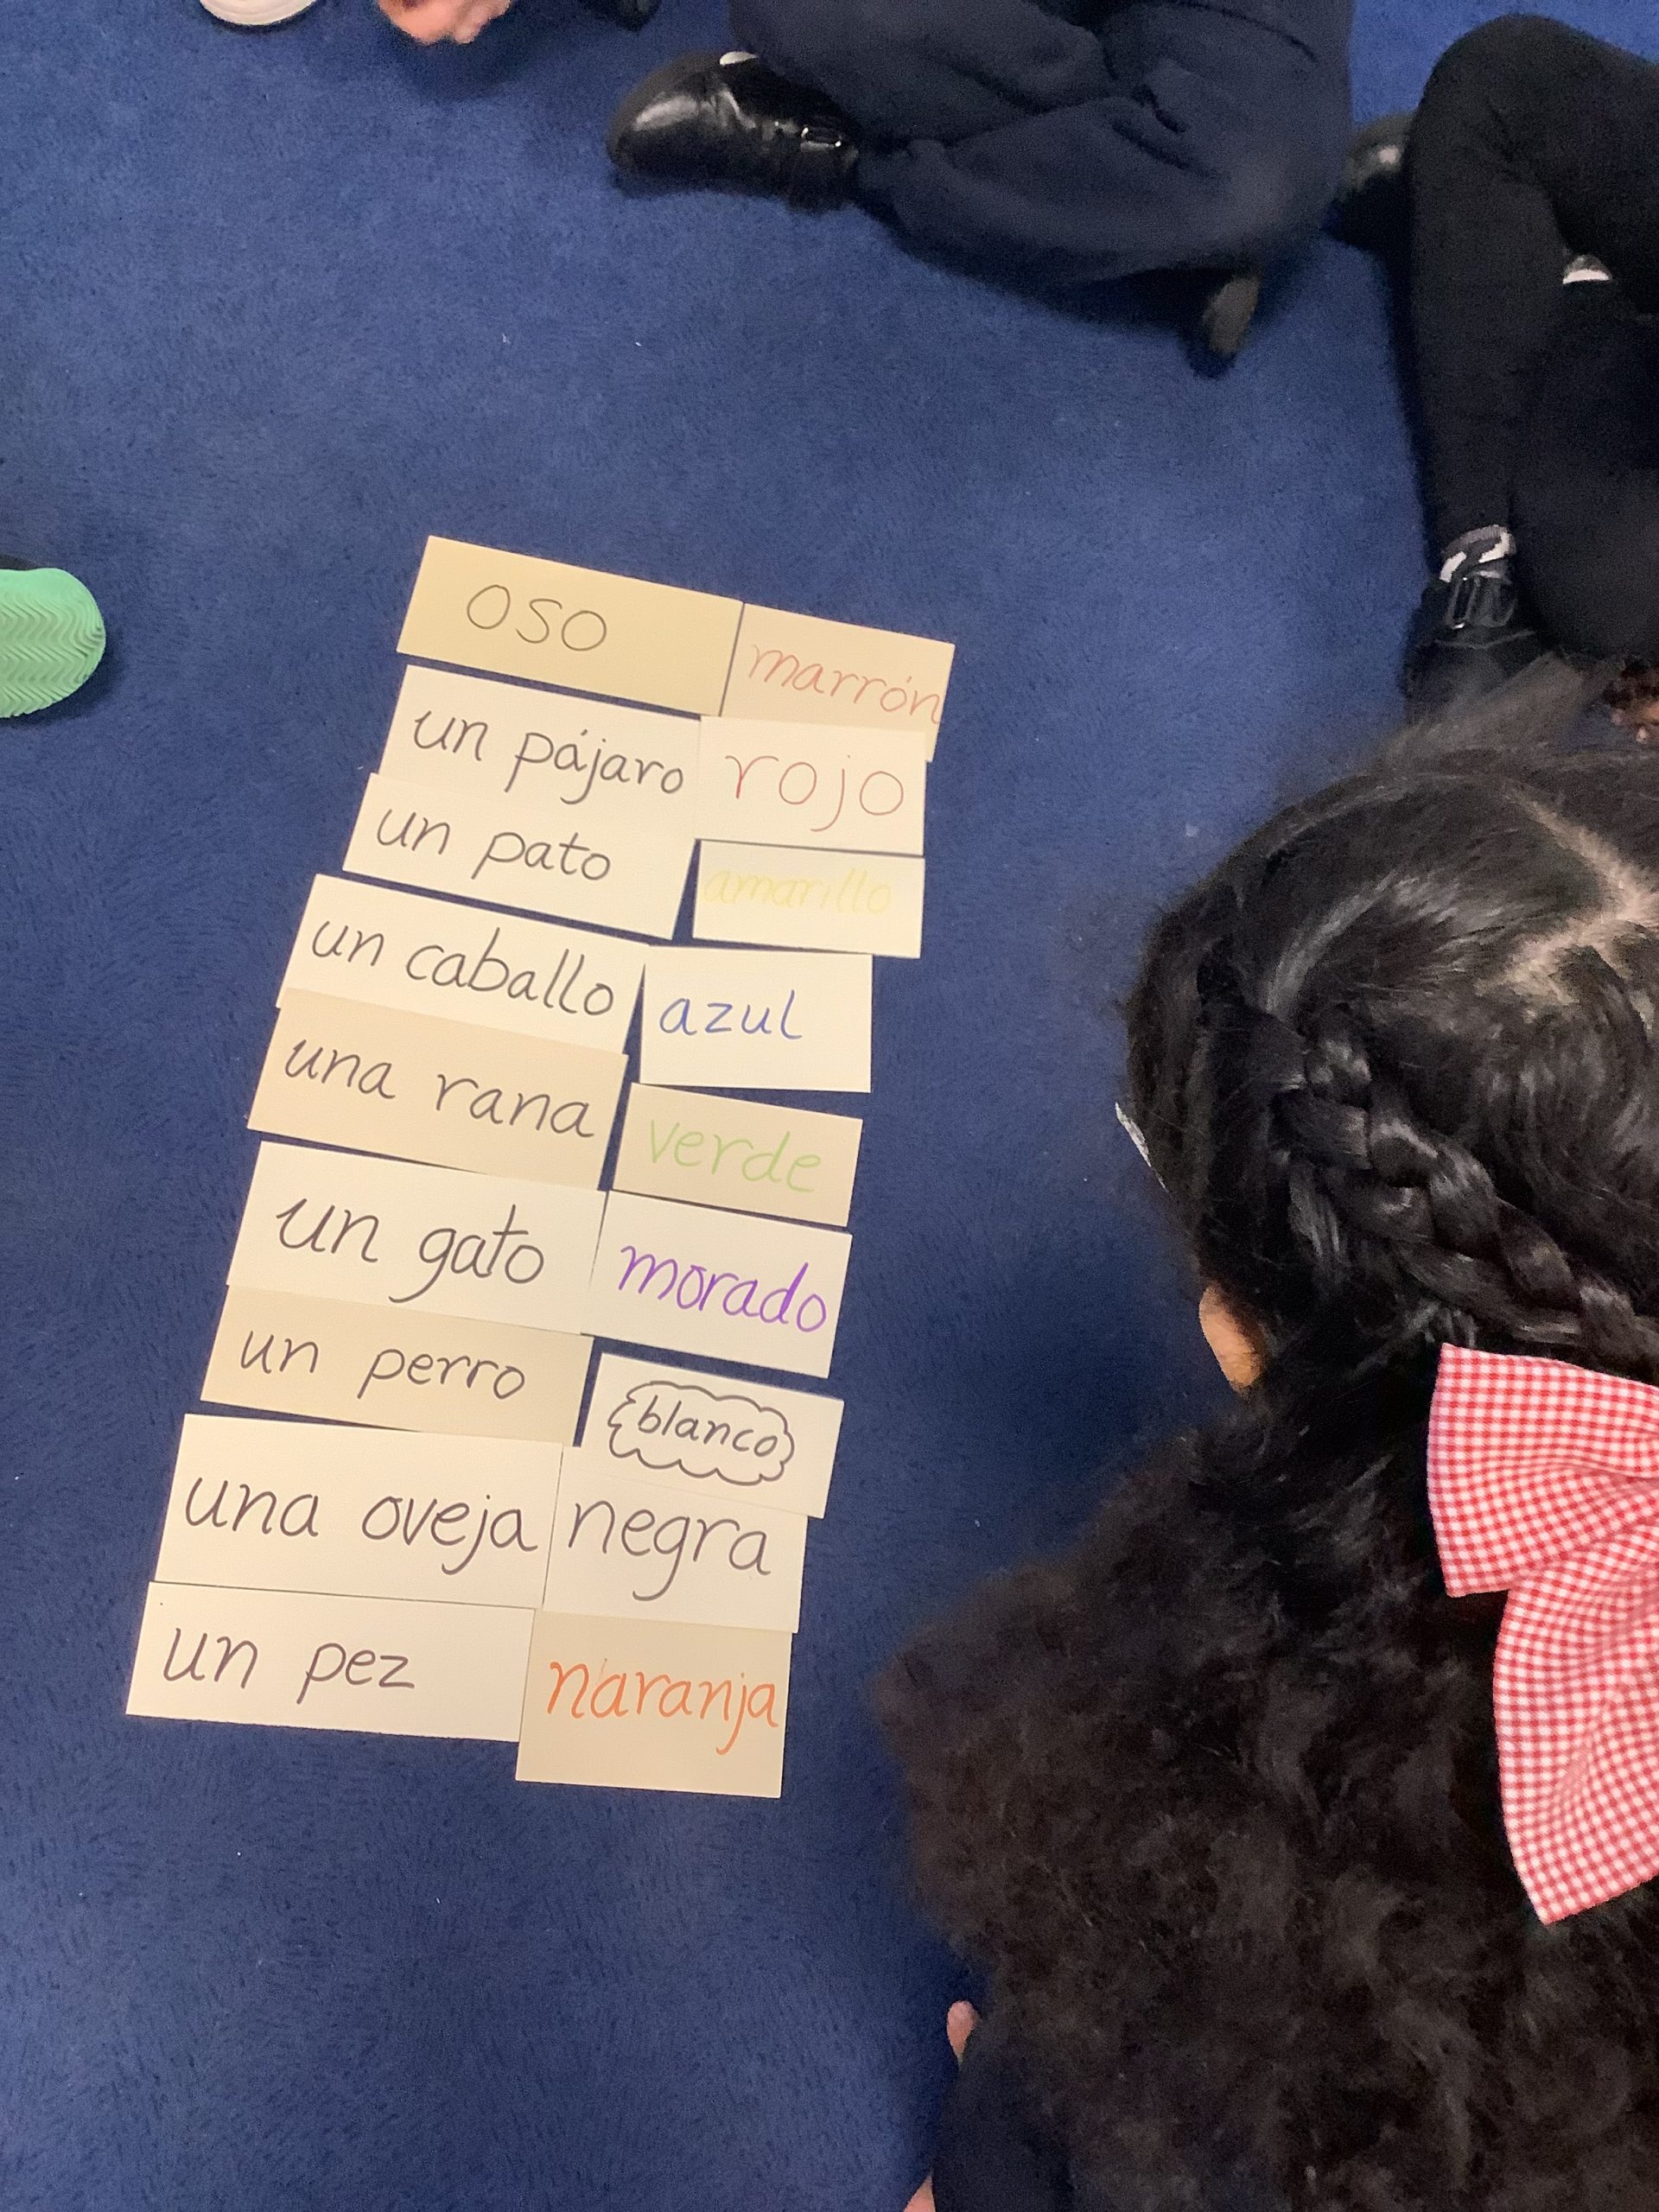 oso marrón
un pájaro rojo
un pato amarillo
un caballo azul
una rana verde
un gato morado
un perro blanco
una oveja negra
un pez naranja